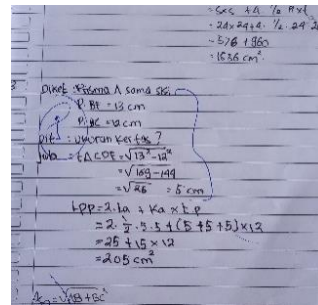 = S×S + 4. ½ a × t
= 24×24+4. ½ . 24 2
= 576 + 960
= 1536 cm²
Diket : Prisma Δ sama ski
P. BF = 13 cm
P. BC = 12 cm
Dit : ukuran kertas ?
Jwb = EΔ CDE = √13² - 12²
= √169 - 144
= √25 = 5 cm
LPP = 2. La + Ka × t p
= 2. ½ . 5.5 + (5+5+5) × 12
= 25 + 15 × 12
= 205 cm²
= √AB + BC²